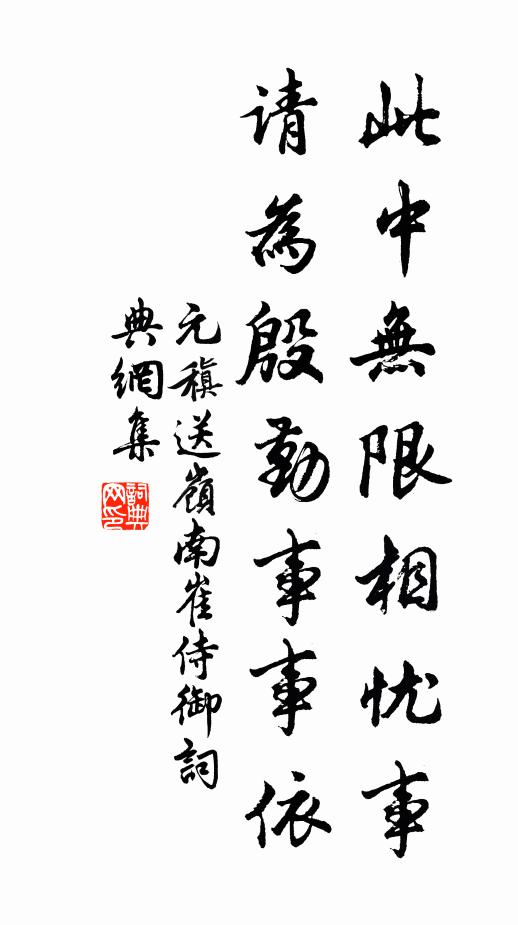 此中無限相忧事
请為殷勤事事依
元稹送嶺南崔侍御詞
典網集
詞典网印